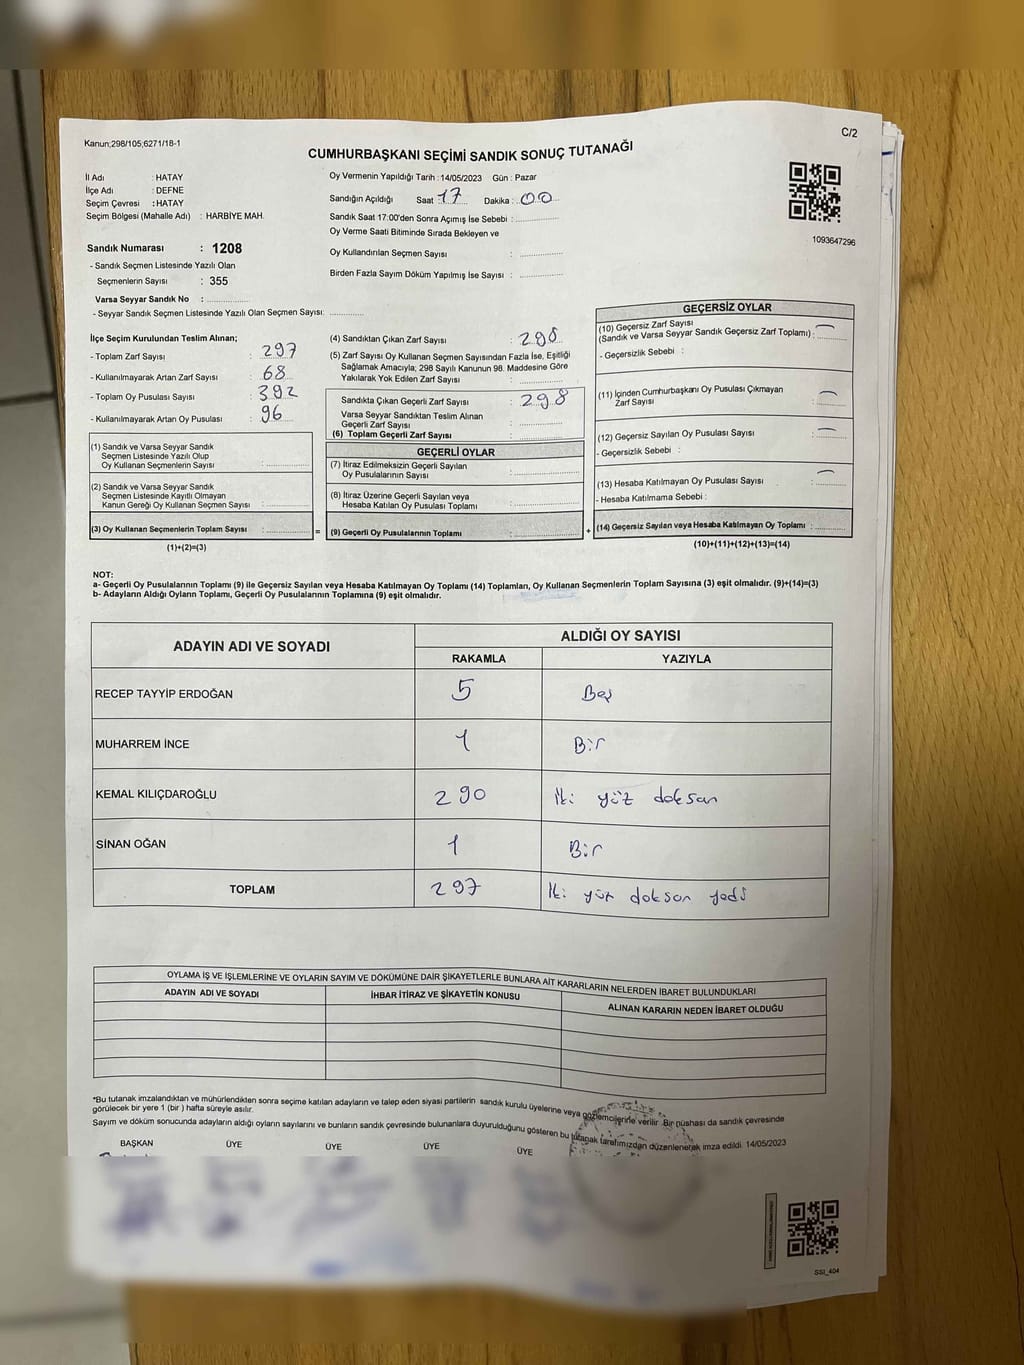 Kanun;298/105;6271/18-1
C/2
CUMHURBAŞKANI SEÇİMİ SANDIK SONUÇ TUTANAĞI
İl Adı : HATAY
İlçe Adı : DEFNE
Seçim Çevresi : HATAY
Seçim Bölgesi (Mahalle Adı) : HARBİYE MAH.
Sandık Numarası : 1208
- Sandık Seçmen Listesinde Yazılı Olan
Seçmenlerin Sayısı : 355
Varsa Seyyar Sandık No :
- Seyyar Sandık Seçmen Listesinde Yazılı Olan Seçmen Sayısı:
Oy Vermenin Yapıldığı Tarih : 14/05/2023 Gün : Pazar
Sandığın Açıldığı Saat : 17 Dakika : 00
Sandık Saat 17:00'den Sonra Açımış İse Sebebi :
Oy Verme Saati Bitiminde Sırada Bekleyen ve
Oy Kullandırılan Seçmen Sayısı :
Birden Fazla Sayım Döküm Yapılmış İse Sayısı :
1093647296
İlçe Seçim Kurulundan Teslim Alınan;
- Toplam Zarf Sayısı : 297
- Kullanılmayarak Artan Zarf Sayısı : 68
- Toplam Oy Pusulası Sayısı : 392
- Kullanılmayarak Artan Oy Pusulası : 96
(1) Sandık ve Varsa Seyyar Sandık
Seçmen Listesinde Yazılı Olup
Oy Kullanan Seçmenlerin Sayısı :
(2) Sandık ve Varsa Seyyar Sandık
Seçmen Listesinde Kayıtlı Olmayan
Kanun Gereği Oy Kullanan Seçmen Sayısı :
(3) Oy Kullanan Seçmenlerin Toplam Sayısı : =
(1)+(2)=(3)
(4) Sandıktan Çıkan Zarf Sayısı : 298
(5) Zarf Sayısı Oy Kullanan Seçmen Sayısından Fazla İse, Eşitliği
Sağlamak Amacıyla; 298 Sayılı Kanunun 98. Maddesine Göre
Yakılarak Yok Edilen Zarf Sayısı :
Sandıkta Çıkan Geçerli Zarf Sayısı : 298
Varsa Seyyar Sandıktan Teslim Alınan
Geçerli Zarf Sayısı :
(6) Toplam Geçerli Zarf Sayısı :
GEÇERLİ OYLAR
(7) İtiraz Edilmeksizin Geçerli Sayılan
Oy Pusulalarının Sayısı :
(8) İtiraz Üzerine Geçerli Sayılan veya
Hesaba Katılan Oy Pusulası Toplamı :
(9) Geçerli Oy Pusulalarının Toplamı : +
GEÇERSİZ OYLAR
(10) Geçersiz Zarf Sayısı
(Sandık ve Varsa Seyyar Sandık Geçersiz Zarf Toplamı) :
- Geçersizlik Sebebi :
(11) İçinden Cumhurbaşkanı Oy Pusulası Çıkmayan
Zarf Sayısı :
(12) Geçersiz Sayılan Oy Pusulası Sayısı :
- Geçersizlik Sebebi :
(13) Hesaba Katılmayan Oy Pusulası Sayısı :
- Hesaba Katılmama Sebebi :
(14) Geçersiz Sayılan veya Hesaba Katılmayan Oy Toplamı :
(10)+(11)+(12)+(13)=(14)
NOT:
a- Geçerli Oy Pusulalarının Toplamı (9) ile Geçersiz Sayılan veya Hesaba Katılmayan Oy Toplamı (14) Toplamları, Oy Kullanan Seçmenlerin Toplam Sayısına (3) eşit olmalıdır. (9)+(14)=(3)
b- Adayların Aldığı Oyların Toplamı, Geçerli Oy Pusulalarının Toplamına (9) eşit olmalıdır.
ADAYIN ADI VE SOYADI ALDIĞI OY SAYISI
RAKAMLA YAZIYLA
RECEP TAYYİP ERDOĞAN 5 Beş
MUHARREM İNCE 1 Bir
KEMAL KILIÇDAROĞLU 290 İki yüz doksan
SİNAN OĞAN 1 Bir
TOPLAM 297 İki yüz doksan yedi
OYLAMA İŞ VE İŞLEMLERİNE VE OYLARIN SAYIM VE DÖKÜMÜNE DAİR ŞİKAYETLERLE BUNLARA AİT KARARLARIN NELERDEN İBARET BULUNDUKLARI
ADAYIN ADI VE SOYADI İHBAR İTİRAZ VE ŞİKAYETİN KONUSU ALINAN KARARIN NEDEN İBARET OLDUĞU
*Bu tutanak imzalandıktan ve mühürlendikten sonra seçime katılan adayların ve talep eden siyasi partilerin sandık kurulu üyelerine veya gözlemcilerine verilir. Bir nüshası da sandık çevresinde
görülecek bir yere 1 (bir ) hafta süreyle asılır.
Sayım ve döküm sonucunda adayların aldığı oyların sayılarını ve bunların sandık çevresinde bulunanlara duyurulduğunu gösteren bu tutanak tarafımızdan düzenlenerek imza edildi. 14/05/2023
BAŞKAN ÜYE ÜYE ÜYE ÜYE
SSI_404